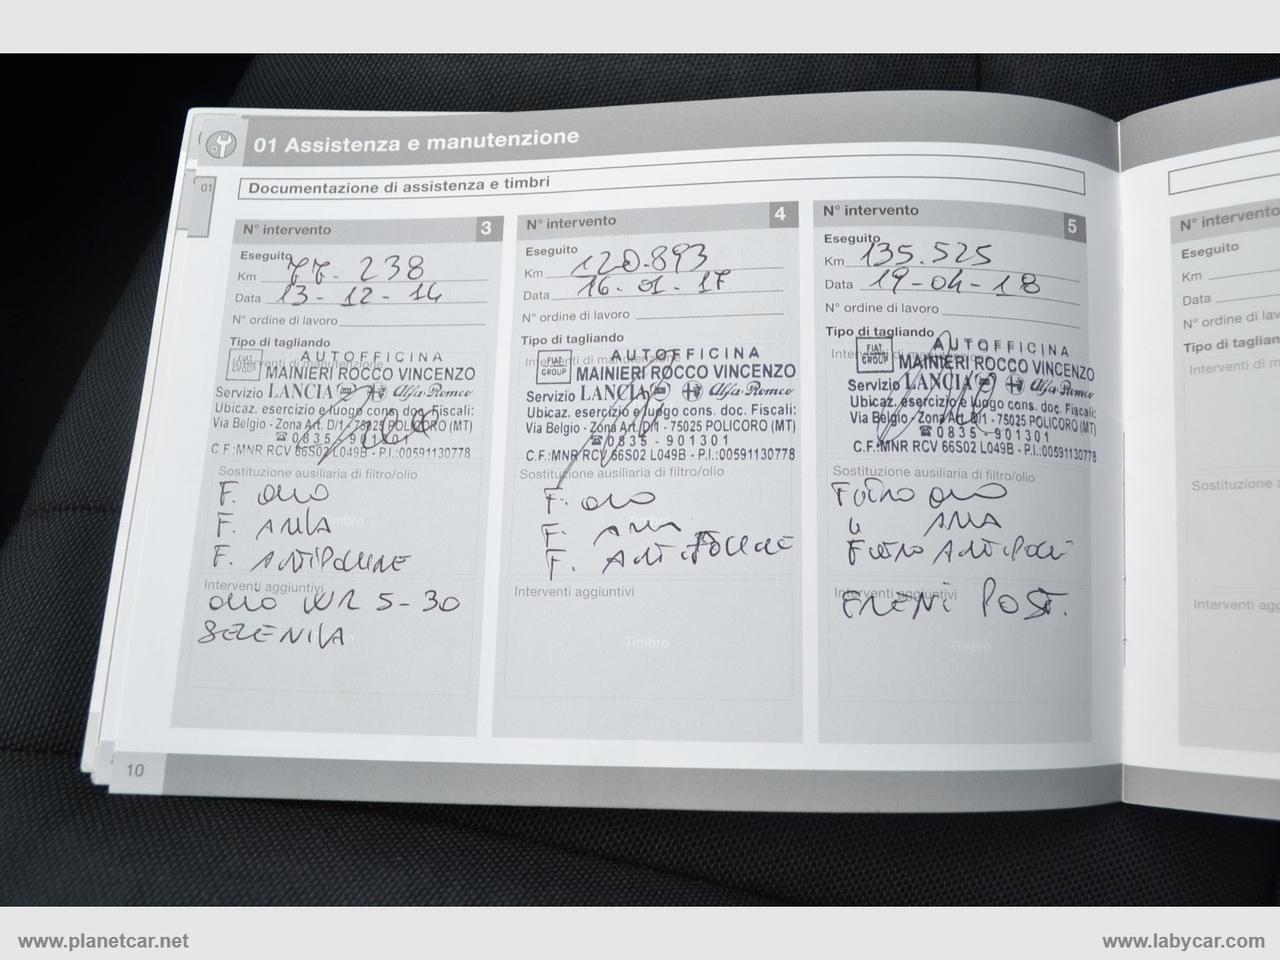 01 Assistenza e manutenzione
01
Documentazione di assistenza e timbri
N° intervento 3
Eseguito
Km 77.238
Data 13-12-14
N° ordine di lavoro
Tipo di tagliando
Interventi di manutenzione
FIAT GROUP
AUTOFFICINA
MAINIERI ROCCO VINCENZO
Servizio LANCIA Alfa Romeo
Ubicaz. esercizio e luogo cons. doc. Fiscali:
Via Belgio - Zona Art. D/1 - 75025 POLICORO (MT)
☎ 0835 - 901301
C.F.:MNR RCV 66S02 L049B - P.I.:00591130778
Sostituzione ausiliaria di filtro/olio
F. OLIO
F. ARIA
Timbro
F. ANTIPOLLINE
Interventi aggiuntivi
OLIO WR 5-30
SELENIA
N° intervento 4
Eseguito
Km 120.893
Data 16-01-17
N° ordine di lavoro
Tipo di tagliando
Interventi di manutenzione
FIAT GROUP
AUTOFFICINA
MAINIERI ROCCO VINCENZO
Servizio LANCIA Alfa Romeo
Ubicaz. esercizio e luogo cons. doc. Fiscali:
Via Belgio - Zona Art. D/1 - 75025 POLICORO (MT)
☎ 0835 - 901301
C.F.:MNR RCV 66S02 L049B - P.I.:00591130778
Sostituzione ausiliaria di filtro/olio
F. OLIO
F. ARIA
Timbro
F. ANTIPOLLINE
Interventi aggiuntivi
Timbro
N° intervento 5
Eseguito
Km 135.525
Data 19-04-18
N° ordine di lavoro
Tipo di tagliando
Interventi di manutenzione
FIAT GROUP
AUTOFFICINA
MAINIERI ROCCO VINCENZO
Servizio LANCIA Alfa Romeo
Ubicaz. esercizio e luogo cons. doc. Fiscali:
Via Belgio - Zona Art. D/1 - 75025 POLICORO (MT)
☎ 0835 - 901301
C.F.:MNR RCV 66S02 L049B - P.I.:00591130778
Sostituzione ausiliaria di filtro/olio
FILTRO OLIO
" ARIA
FILTRO ANTIPOLL
Interventi aggiuntivi
FRENI POST.
Timbro
10
N° intervento
Eseguito
Km
Data
N° ordine di lavoro
Tipo di taglian
Interventi di m
Sostituzione a
Interventi agg
www.planetcar.net
www.labycar.com